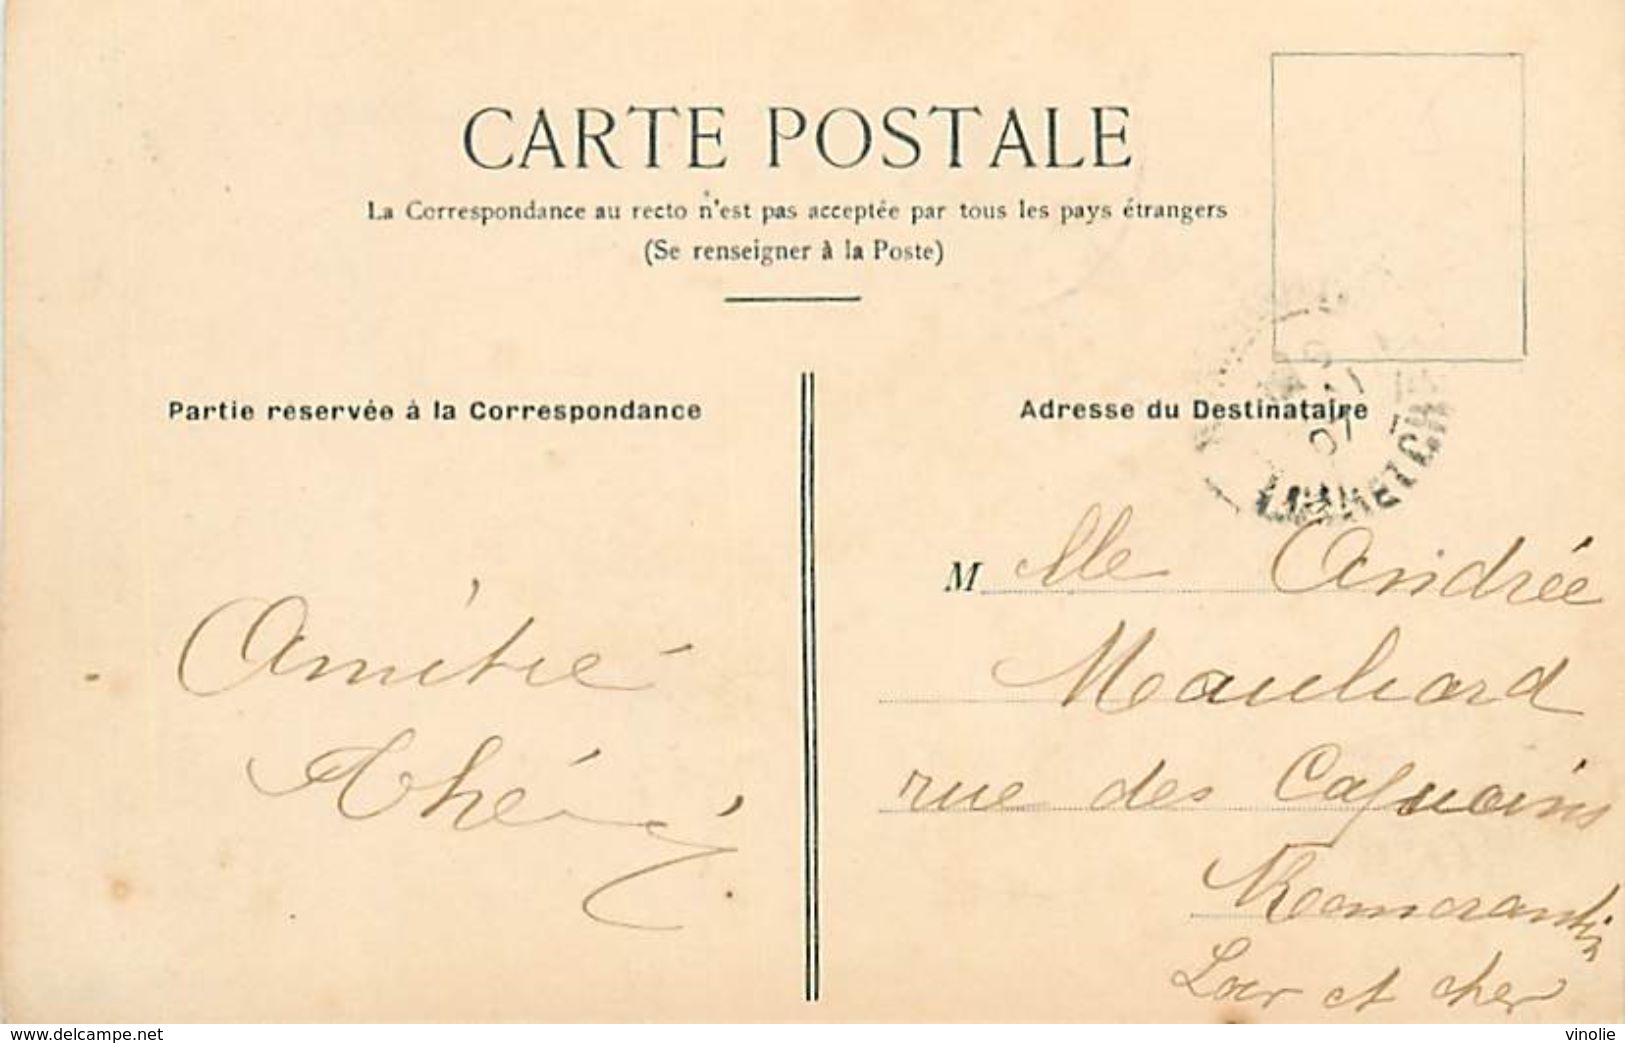 CARTE POSTALE
La Correspondance au recto n'est pas acceptée par tous les pays étrangers
(Se renseigner à la Poste)
Partie réservée à la Correspondance
Amitié
Adresse du Destinataire
07
LOIR-ET-CHER
Mlle Andrée
Mauchard
rue des Capucins
Romorantin
Loir et cher
www.delcampe.net
vinolie